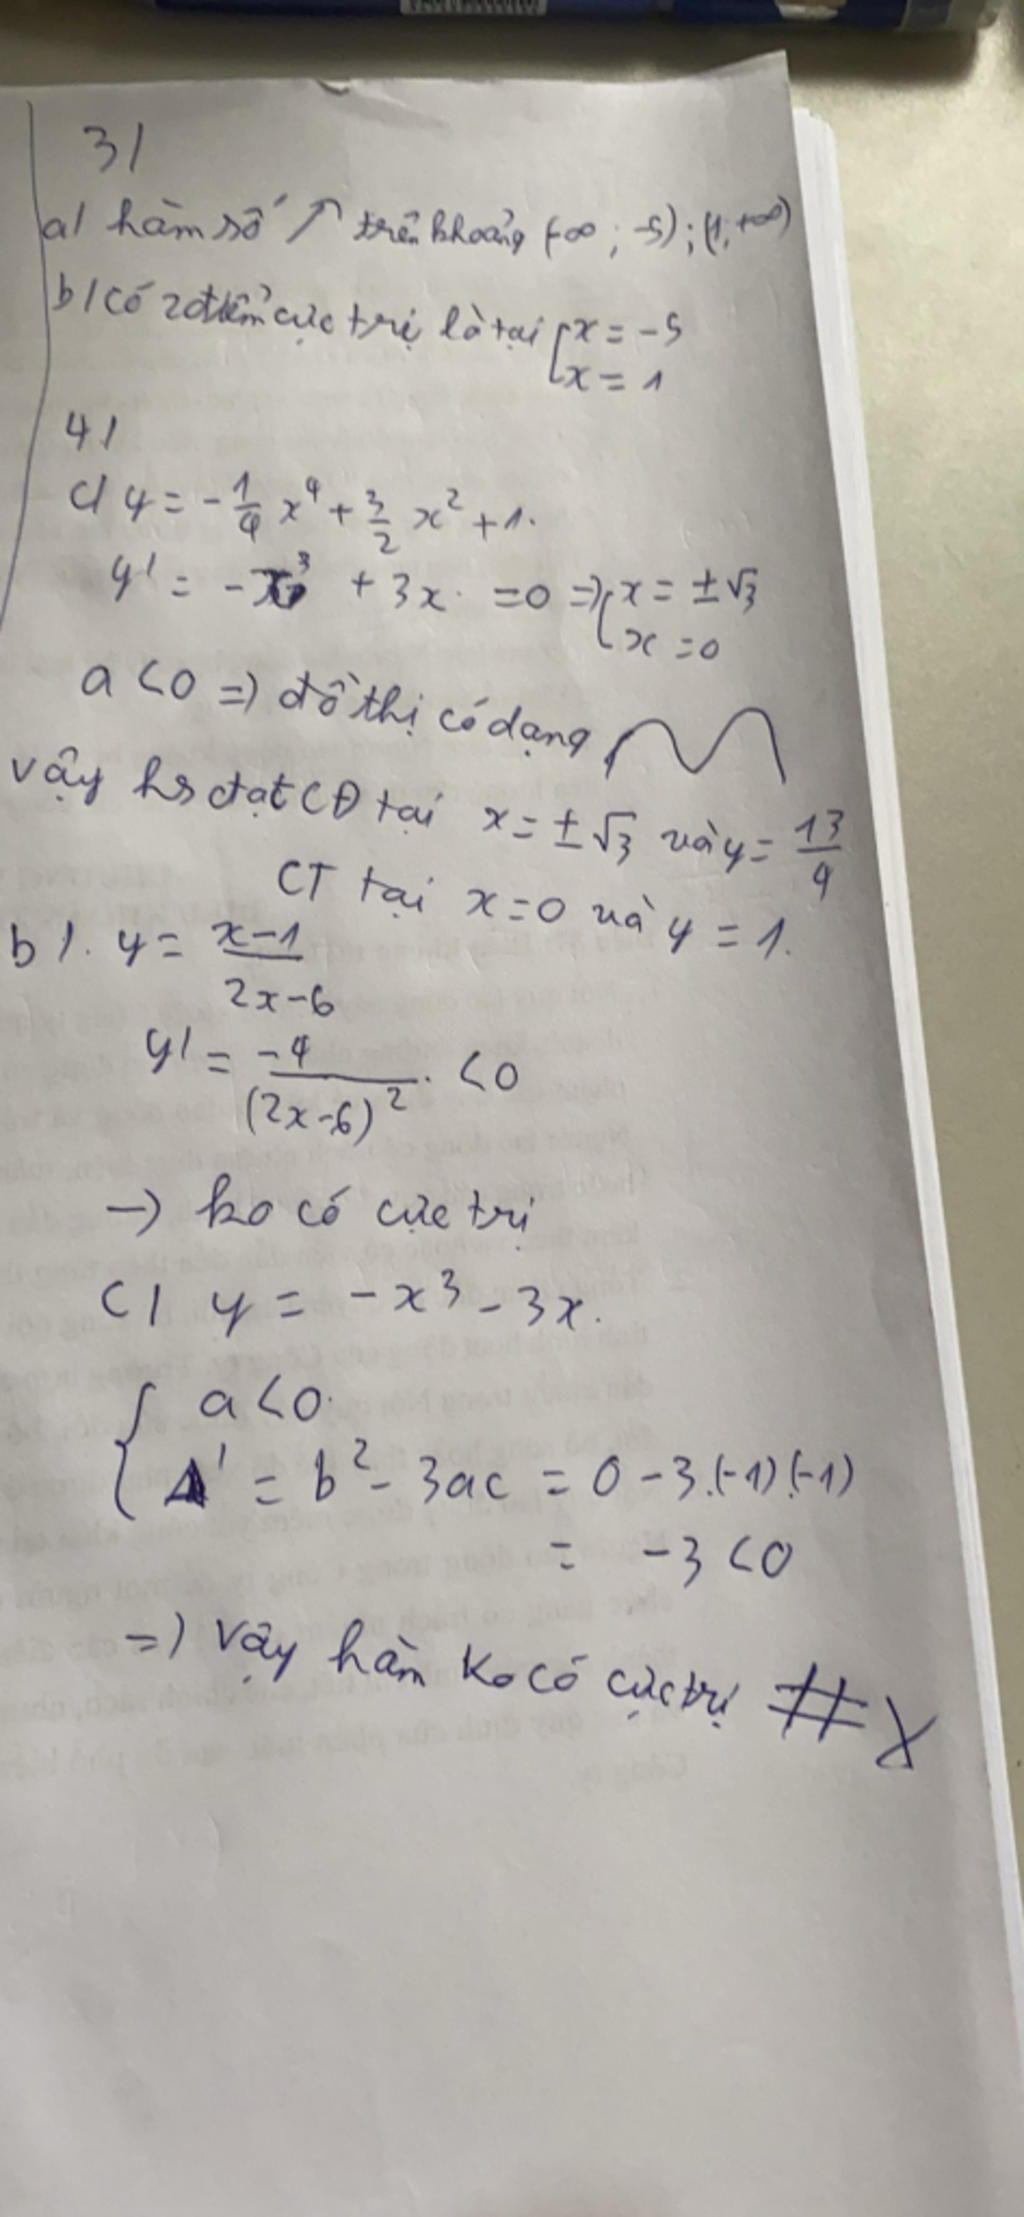 3/
a/ hàm số ↗ trên khoảng (-∞; -5); (1, +∞)
b/ có 2 điểm cực trị là tại [x = -5
x = 1
4/
c/ y = -1/4 x^4 + 3/2 x^2 + 1.
y' = -x^3 + 3x = 0 => [x = ±√3
x = 0
a < 0 => đồ thị có dạng
vậy hs đạt CĐ tại x = ±√3 và y = 13/4
CT tại x = 0 và y = 1.
b/. y = (x-1)/(2x-6)
y' = -4/(2x-6)^2 < 0
→ ko có cực trị
c/ y = -x^3 - 3x.
{ a < 0.
Δ' = b^2 - 3ac = 0 - 3.(-1)(-1)
= -3 < 0
=> Vậy hàm ko có cực trị #